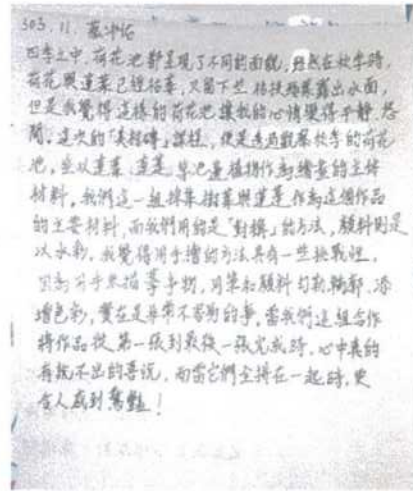 303.11. 蔡沖佑
四季之中,荷花池都呈現了不同的面貌,雖然在秋季時,
荷花與蓮葉已經枯萎,又留下些枯枝殘葉露出水面,
但是我覺得這樣的荷花池讓我的心情變得平靜、悠
閒。這次的「美相磚」課程,便是透過觀察秋季的荷花
池,並以蓮葉、蓮蓬等池畫植物作為繪畫的主体
材料,我們這一組採集樹葉與蓮蓬作為這個作品
的主要材料,而我們用的是「對摹」的方法,顏料則是
以水彩。我覺得用手繪的方法具有一些挑戰性,
因為用手來描摹事物,用筆和顏料勾勒輪廓、添
增色彩,實在是非常不容易的事,當我們這組合作
將作品從第一張到最後一張完成時,心中真的
有說不出的喜悅,而當它們全拼在一起時,更
令人感到驚豔!